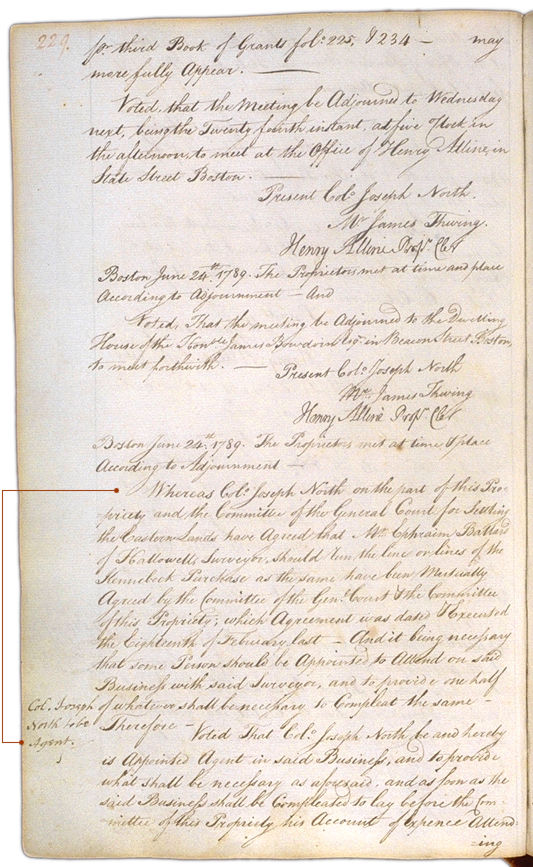 229.
pr. third Book of Grants fol.o 225, & 234 — may
more fully Appear. —
Voted, that the Meeting be Adjourned to Wednesday
next, being the Twenty fourth instant, at five oClock in
the afternoon, to meet at the Office of Henry Alline, in
State Street Boston. —
Present Colo. Joseph North.
Mr. James Thwing.
Henry Alline Proprs. Clerk
Boston June 24th. 1789. The Proprietors met at time and place
According to Adjournment — And
Voted, That the meeting be Adjourned to the Dwelling
House of the Honble James Bowdoin Esqr. in Beacon Street Boston,
to meet forthwith. — Present Colo. Joseph North
Mr. James Thwing
Henry Alline Proprs. Clerk
Boston June 24th. 1789. The Proprietors met at time & place
According to Adjournment —
Whereas Colo. Joseph North on the part of this Pro-
priety and the Committee of the General Court for Settling
the Eastern Lands have Agreed that Mr. Ephraim Ballard
of Hallowell, Surveyor, should run the line or lines of the
Kennebeck Purchase as the same have been Mutually
Agreed by the Committee of the Genl. Court & the Committee
of this Propriety; which Agreement was dated & Executed
the Eighteenth of February last — And it being necessary
that some Person should be Appointed to Attend on said
Business with said Surveyor, and to provide one half
of whatever shall be necessary to Compleat the same —
Col. Joseph
North to be
Agent.
Therefore — Voted That Colo. Joseph North, be and hereby
is Appointed Agent in said Business, and to provide
what shall be necessary as aforesaid, and as soon as the
said Business shall be Compleated to lay before the Com-
mittee of this Propriety his Account of Expence Attend-
=ing